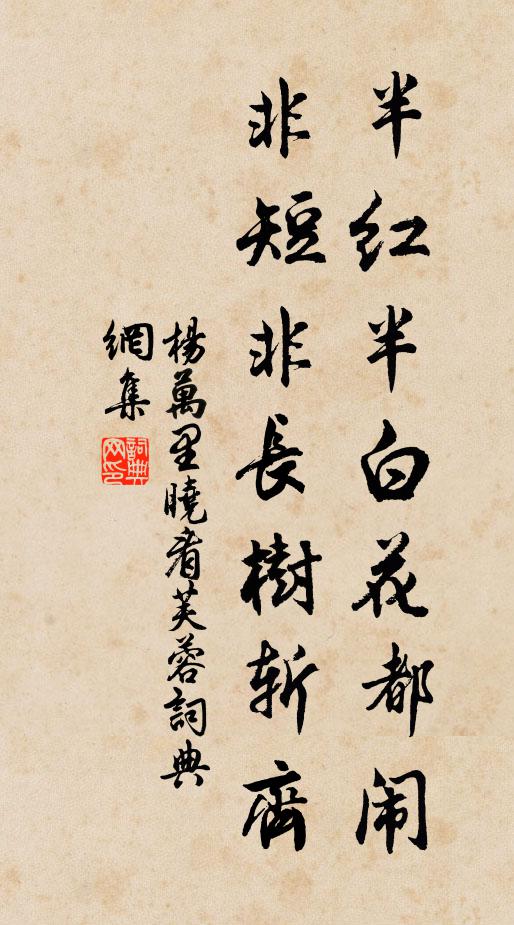 半红半白花都闹
非短非長樹斬齊
楊萬里曉看芙蓉詞典
網集
詞典
网印